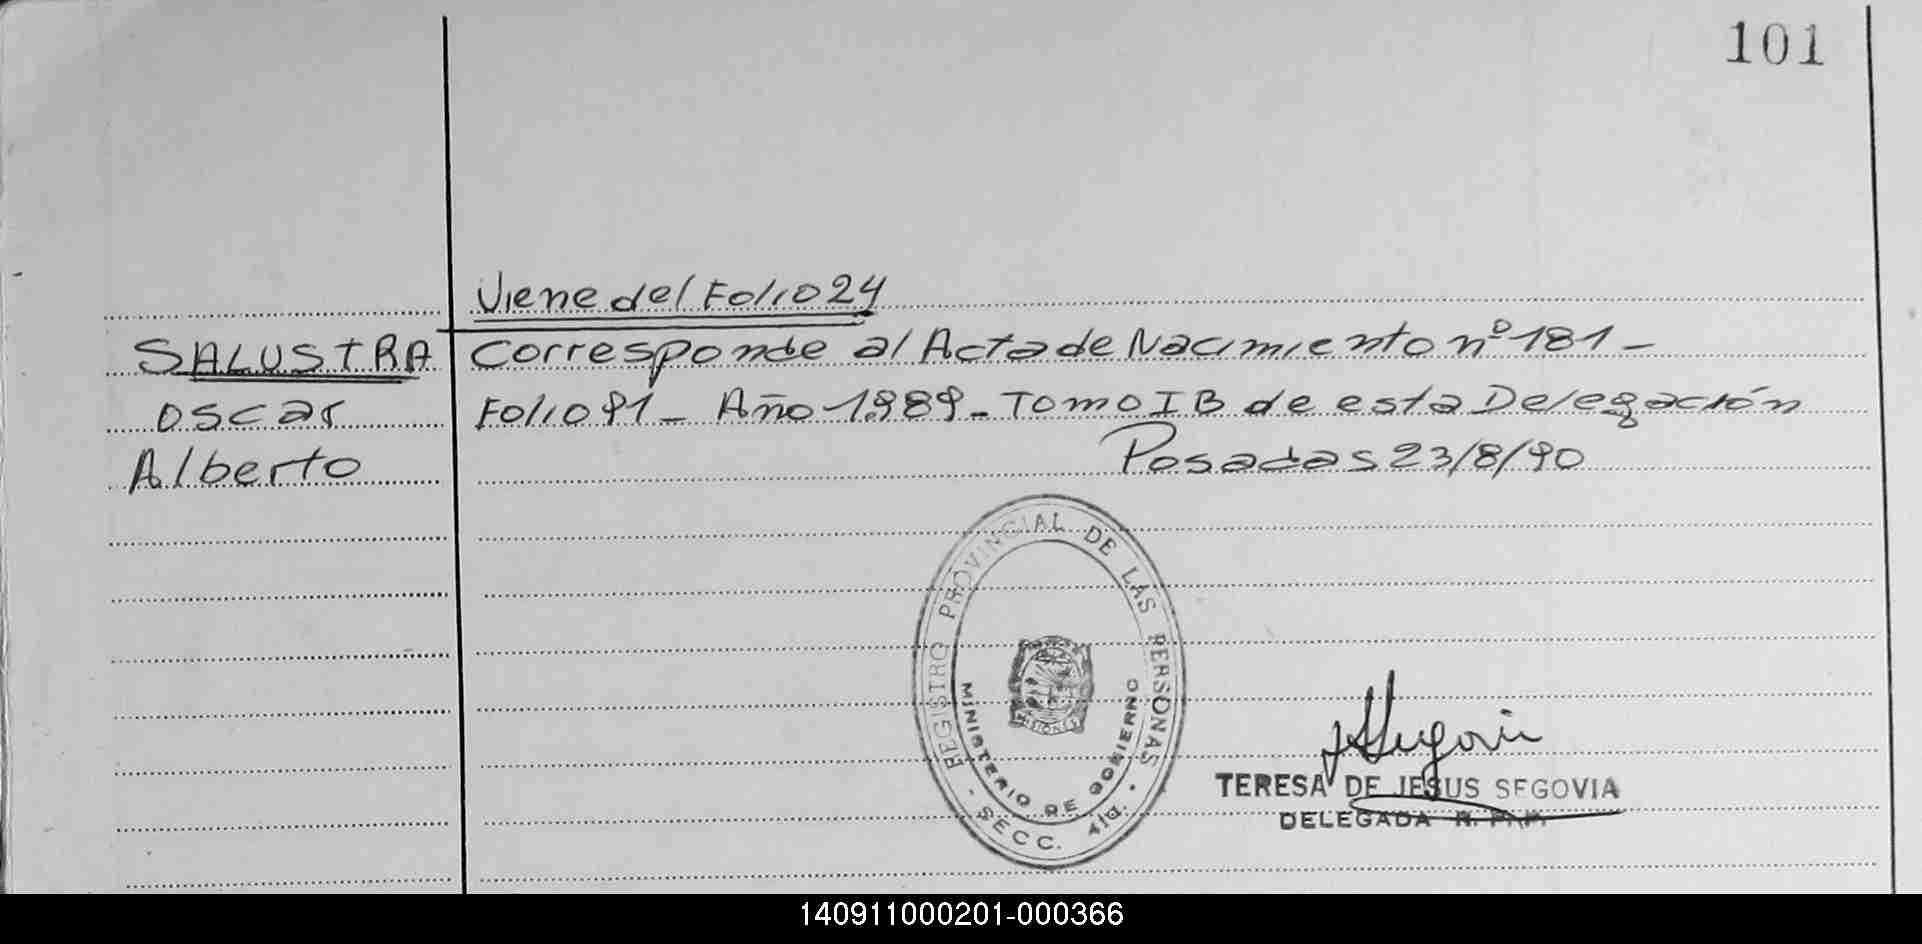 101
Viene del Folio 24
SALUSTRA Corresponde al Acta de Nacimiento nº 181 -
Oscar Folio 91 - Año 1989 - Tomo I B de esta Delegación
Alberto Posadas 23/8/90
REGISTRO PROVINCIAL DE LAS PERSONAS
MINISTERIO DE GOBIERNO
MISIONES
- SECC. 4ta. -
TERESA DE JESUS SEGOVIA
DELEGADA
140911000201-000366